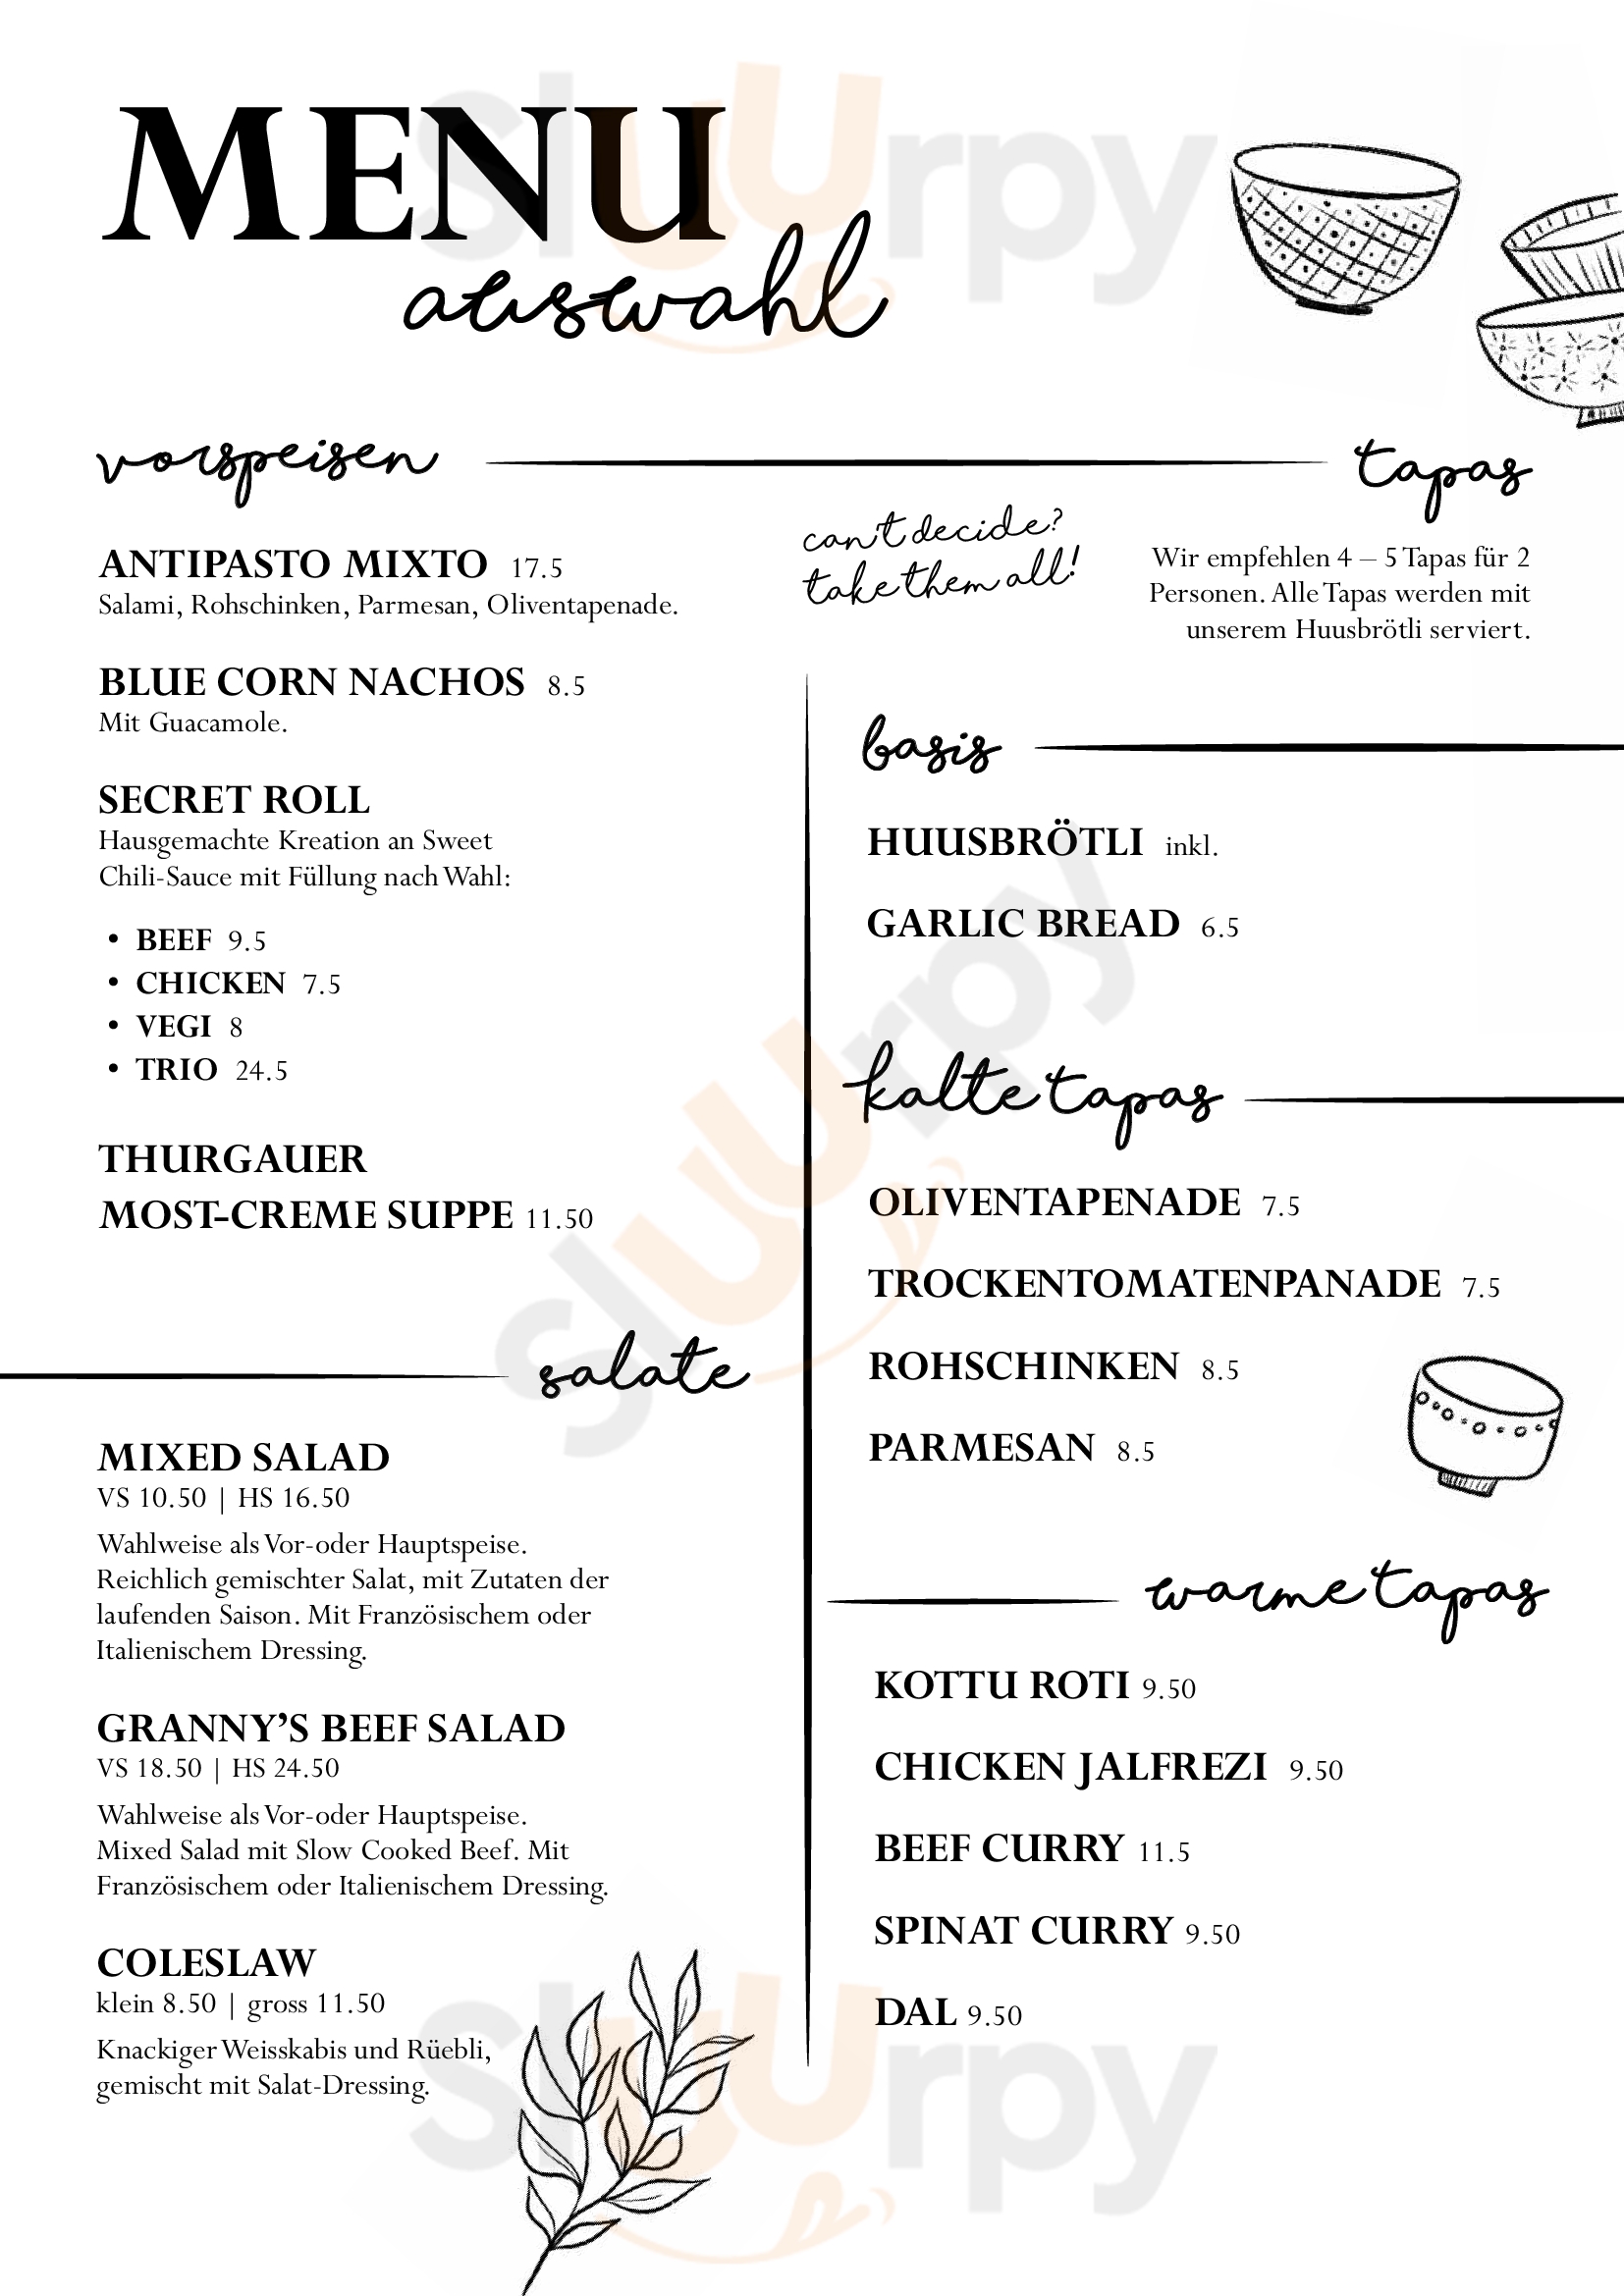 MENU
auswahl
vorspeisen
ANTIPASTO MIXTO 17.5
Salami, Rohschinken, Parmesan, Oliventapenade.
BLUE CORN NACHOS 8.5
Mit Guacamole.
SECRET ROLL
Hausgemachte Kreation an Sweet
Chili-Sauce mit Füllung nach Wahl:
• BEEF 9.5
• CHICKEN 7.5
• VEGI 8
• TRIO 24.5
THURGAUER
MOST-CREME SUPPE 11.50
salate
MIXED SALAD
VS 10.50 | HS 16.50
Wahlweise als Vor-oder Hauptspeise.
Reichlich gemischter Salat, mit Zutaten der
laufenden Saison. Mit Französischem oder
Italienischem Dressing.
GRANNY'S BEEF SALAD
VS 18.50 | HS 24.50
Wahlweise als Vor-oder Hauptspeise.
Mixed Salad mit Slow Cooked Beef. Mit
Französischem oder Italienischem Dressing.
COLESLAW
klein 8.50 | gross 11.50
Knackiger Weisskabis und Rüebli,
gemischt mit Salat-Dressing.
tapas
can't decide?
take them all!
Wir empfehlen 4 – 5 Tapas für 2
Personen. Alle Tapas werden mit
unserem Huusbrötli serviert.
basis
HUUSBRÖTLI inkl.
GARLIC BREAD 6.5
kalte tapas
OLIVENTAPENADE 7.5
TROCKENTOMATENPANADE 7.5
ROHSCHINKEN 8.5
PARMESAN 8.5
warme tapas
KOTTU ROTI 9.50
CHICKEN JALFREZI 9.50
BEEF CURRY 11.5
SPINAT CURRY 9.50
DAL 9.50
sluurpy
sluurpy
sluurpy